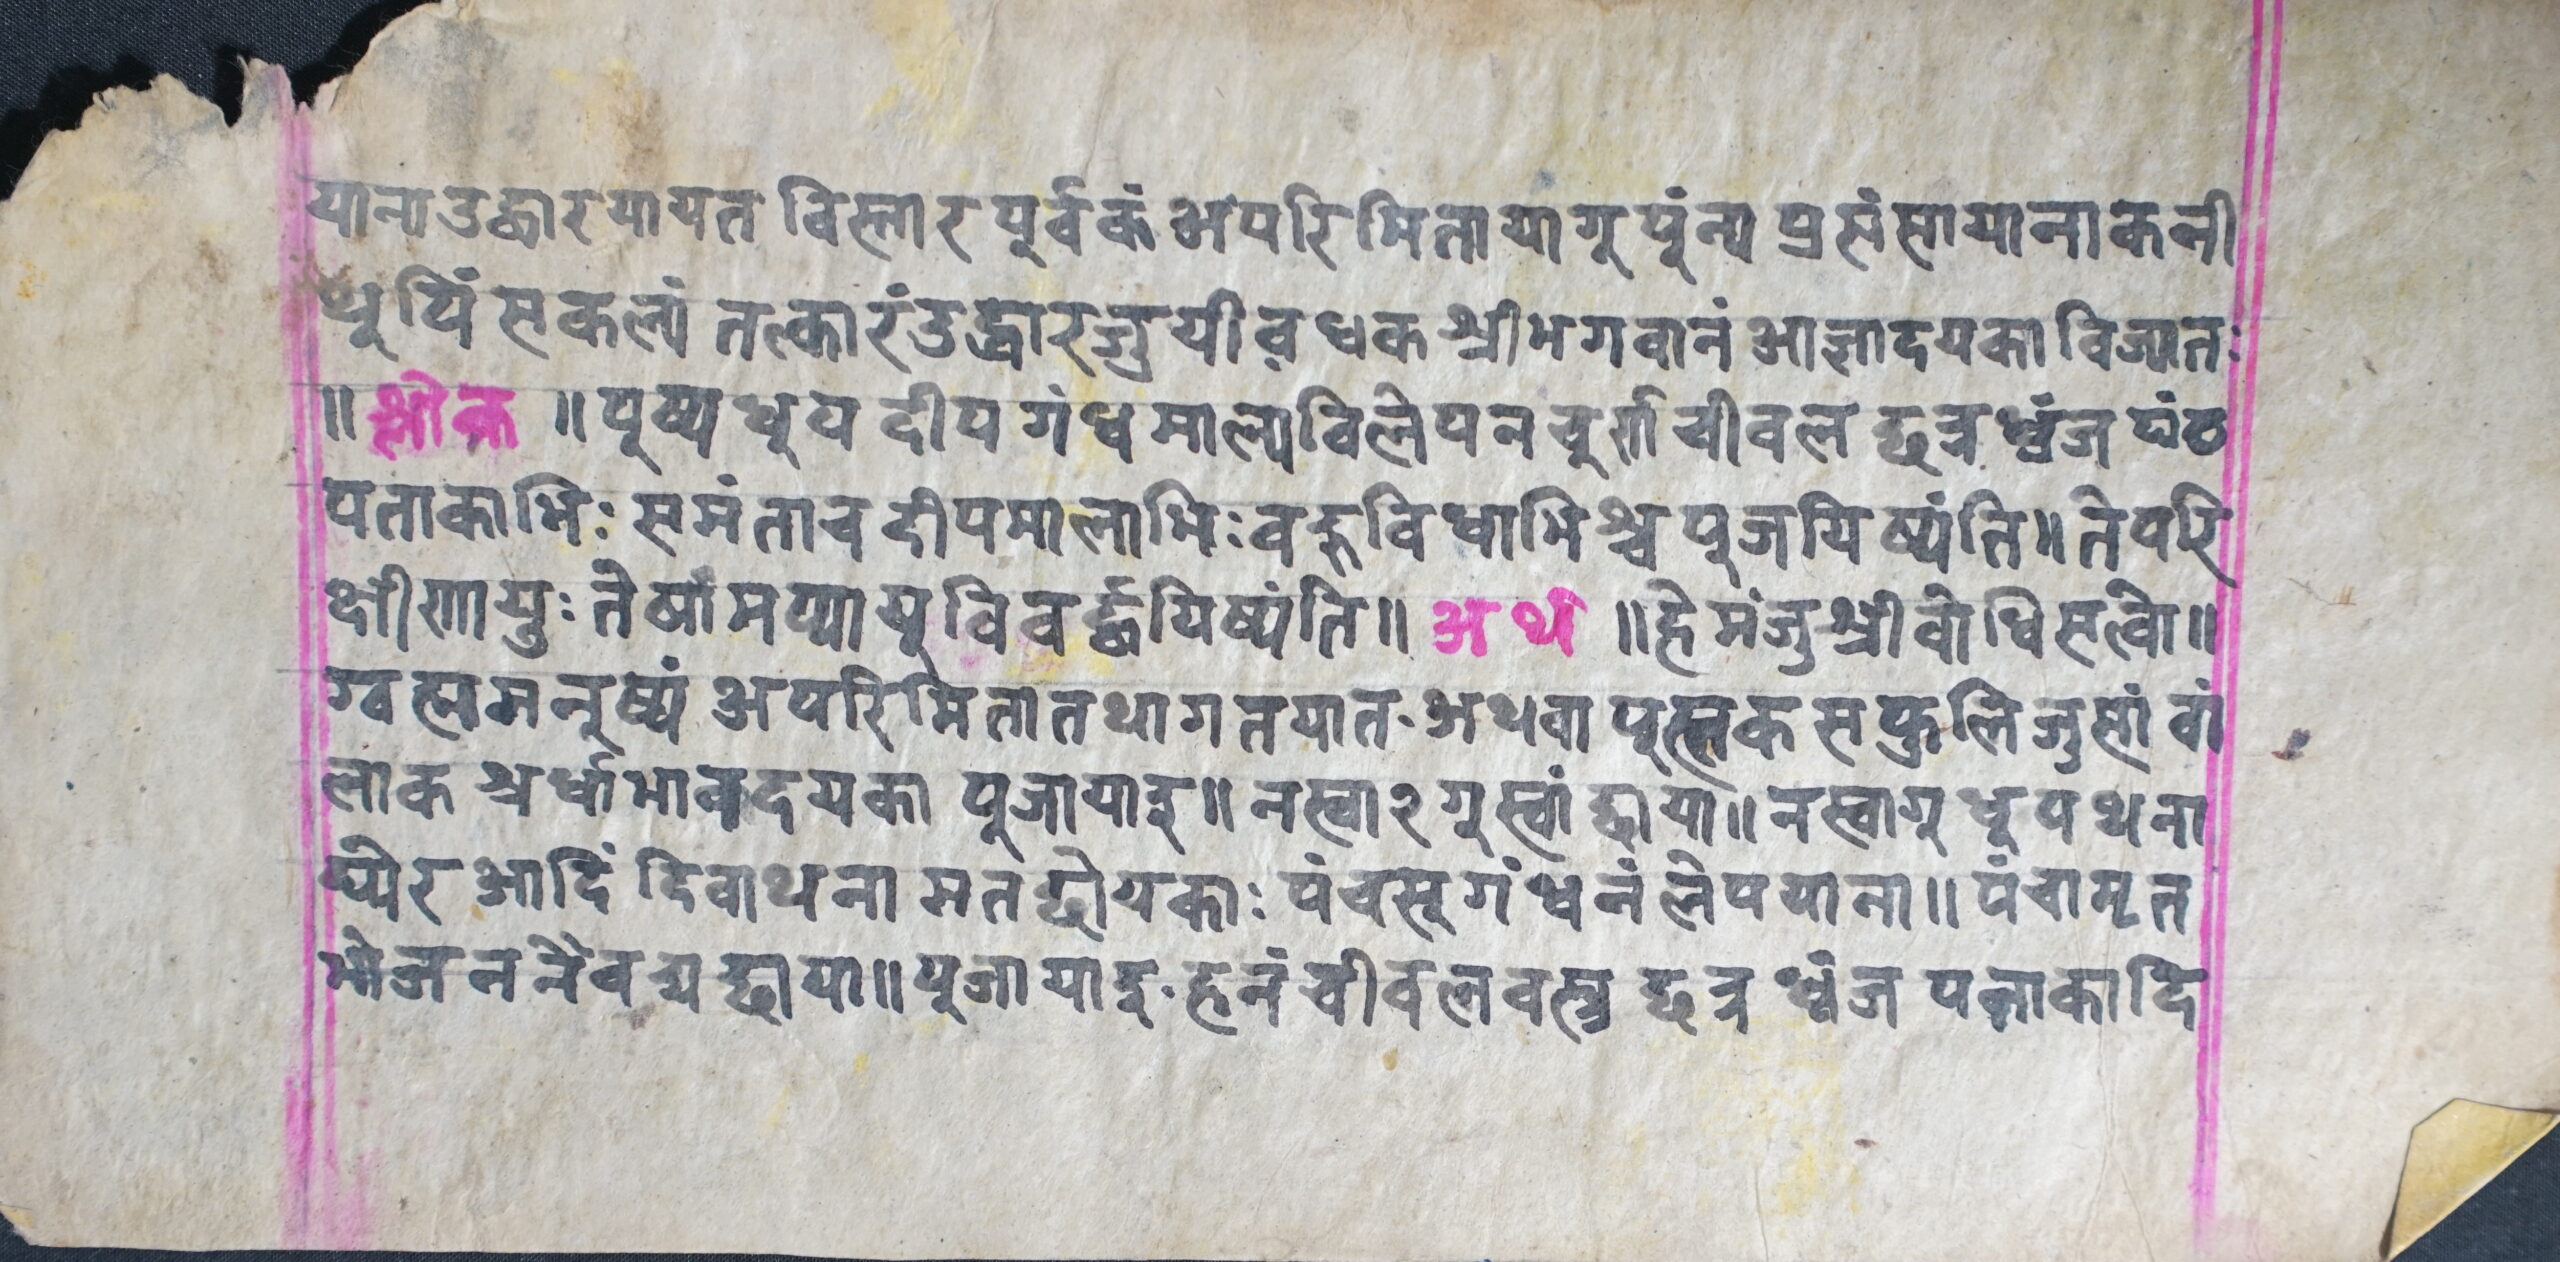 याना उद्धारयायत विस्तार पूर्वकं अपरिमितायागु पुंन्य प्रसंसायाना कनी
थुपिं सकलां तत्कारं उद्धार जुयीव धक श्रीभगवानं आज्ञादयका विज्यातः
॥ श्लोक ॥ पूष्प धुप दीप गंध माल्य विलेपन चुर्ण चीवल छत्र ध्वंज घंठ
पताकाभिः समंताच दीपमालाभिः वहूविधाभिश्च पुजयिष्यंति॥ ते परि
क्षीणायुः तेषांमप्यायु विवर्द्धयिष्यंति॥ अर्थ ॥ हे मंजुश्री वोधिसत्वो॥
ग्वह्म मनुष्यं अपरिमिता तथागतयात. अथवा पुस्तक सफुलि जुसां वां
लाक श्रर्धाभाव दयका पूजायाइ॥ नस्वा२गु स्वां छाया॥ नस्वागु धुप थना
घ्येर आदिं दिवा थना मत छोयकाः पंचसुगंधनं लेपयाना॥ पंचामृत
भोजन नैवद्य छाया॥ पुजायाइ. हनं चीवल वस्त्र छत्र ध्वंज पताकादि